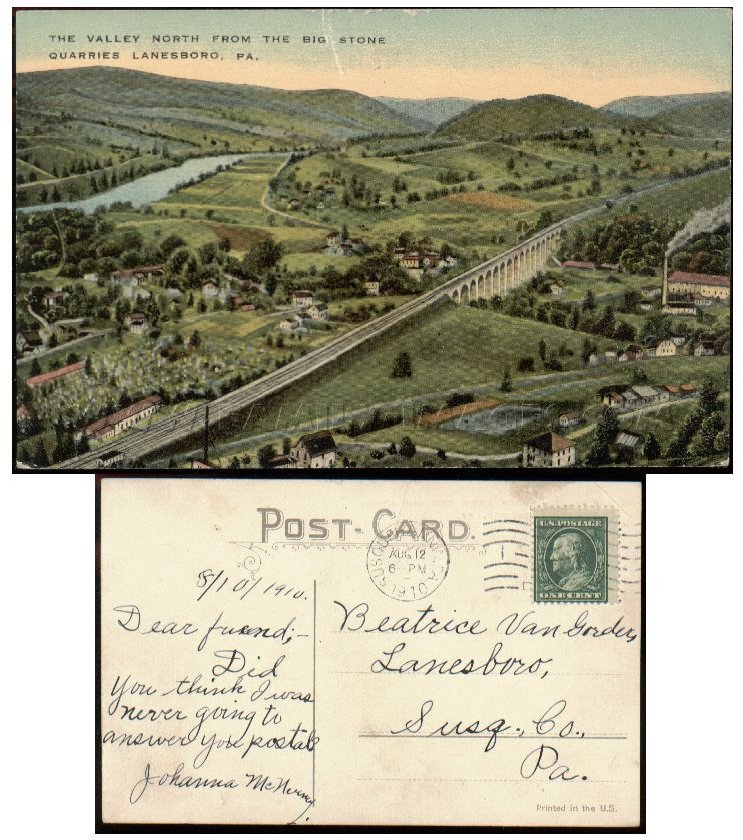 THE VALLEY NORTH FROM THE BIG STONE
QUARRIES LANESBORO, PA.
POST-CARD.
AUG 12
6 PM
1910
U.S. POSTAGE
ONE CENT
8/10/1910.
Dear friend;-
Did
You think I was
never going to
answer you postal?
Johanna
Beatrice Van Gorder,
Lanesboro,
Susq., Co.,
Pa.
Printed in the U.S.